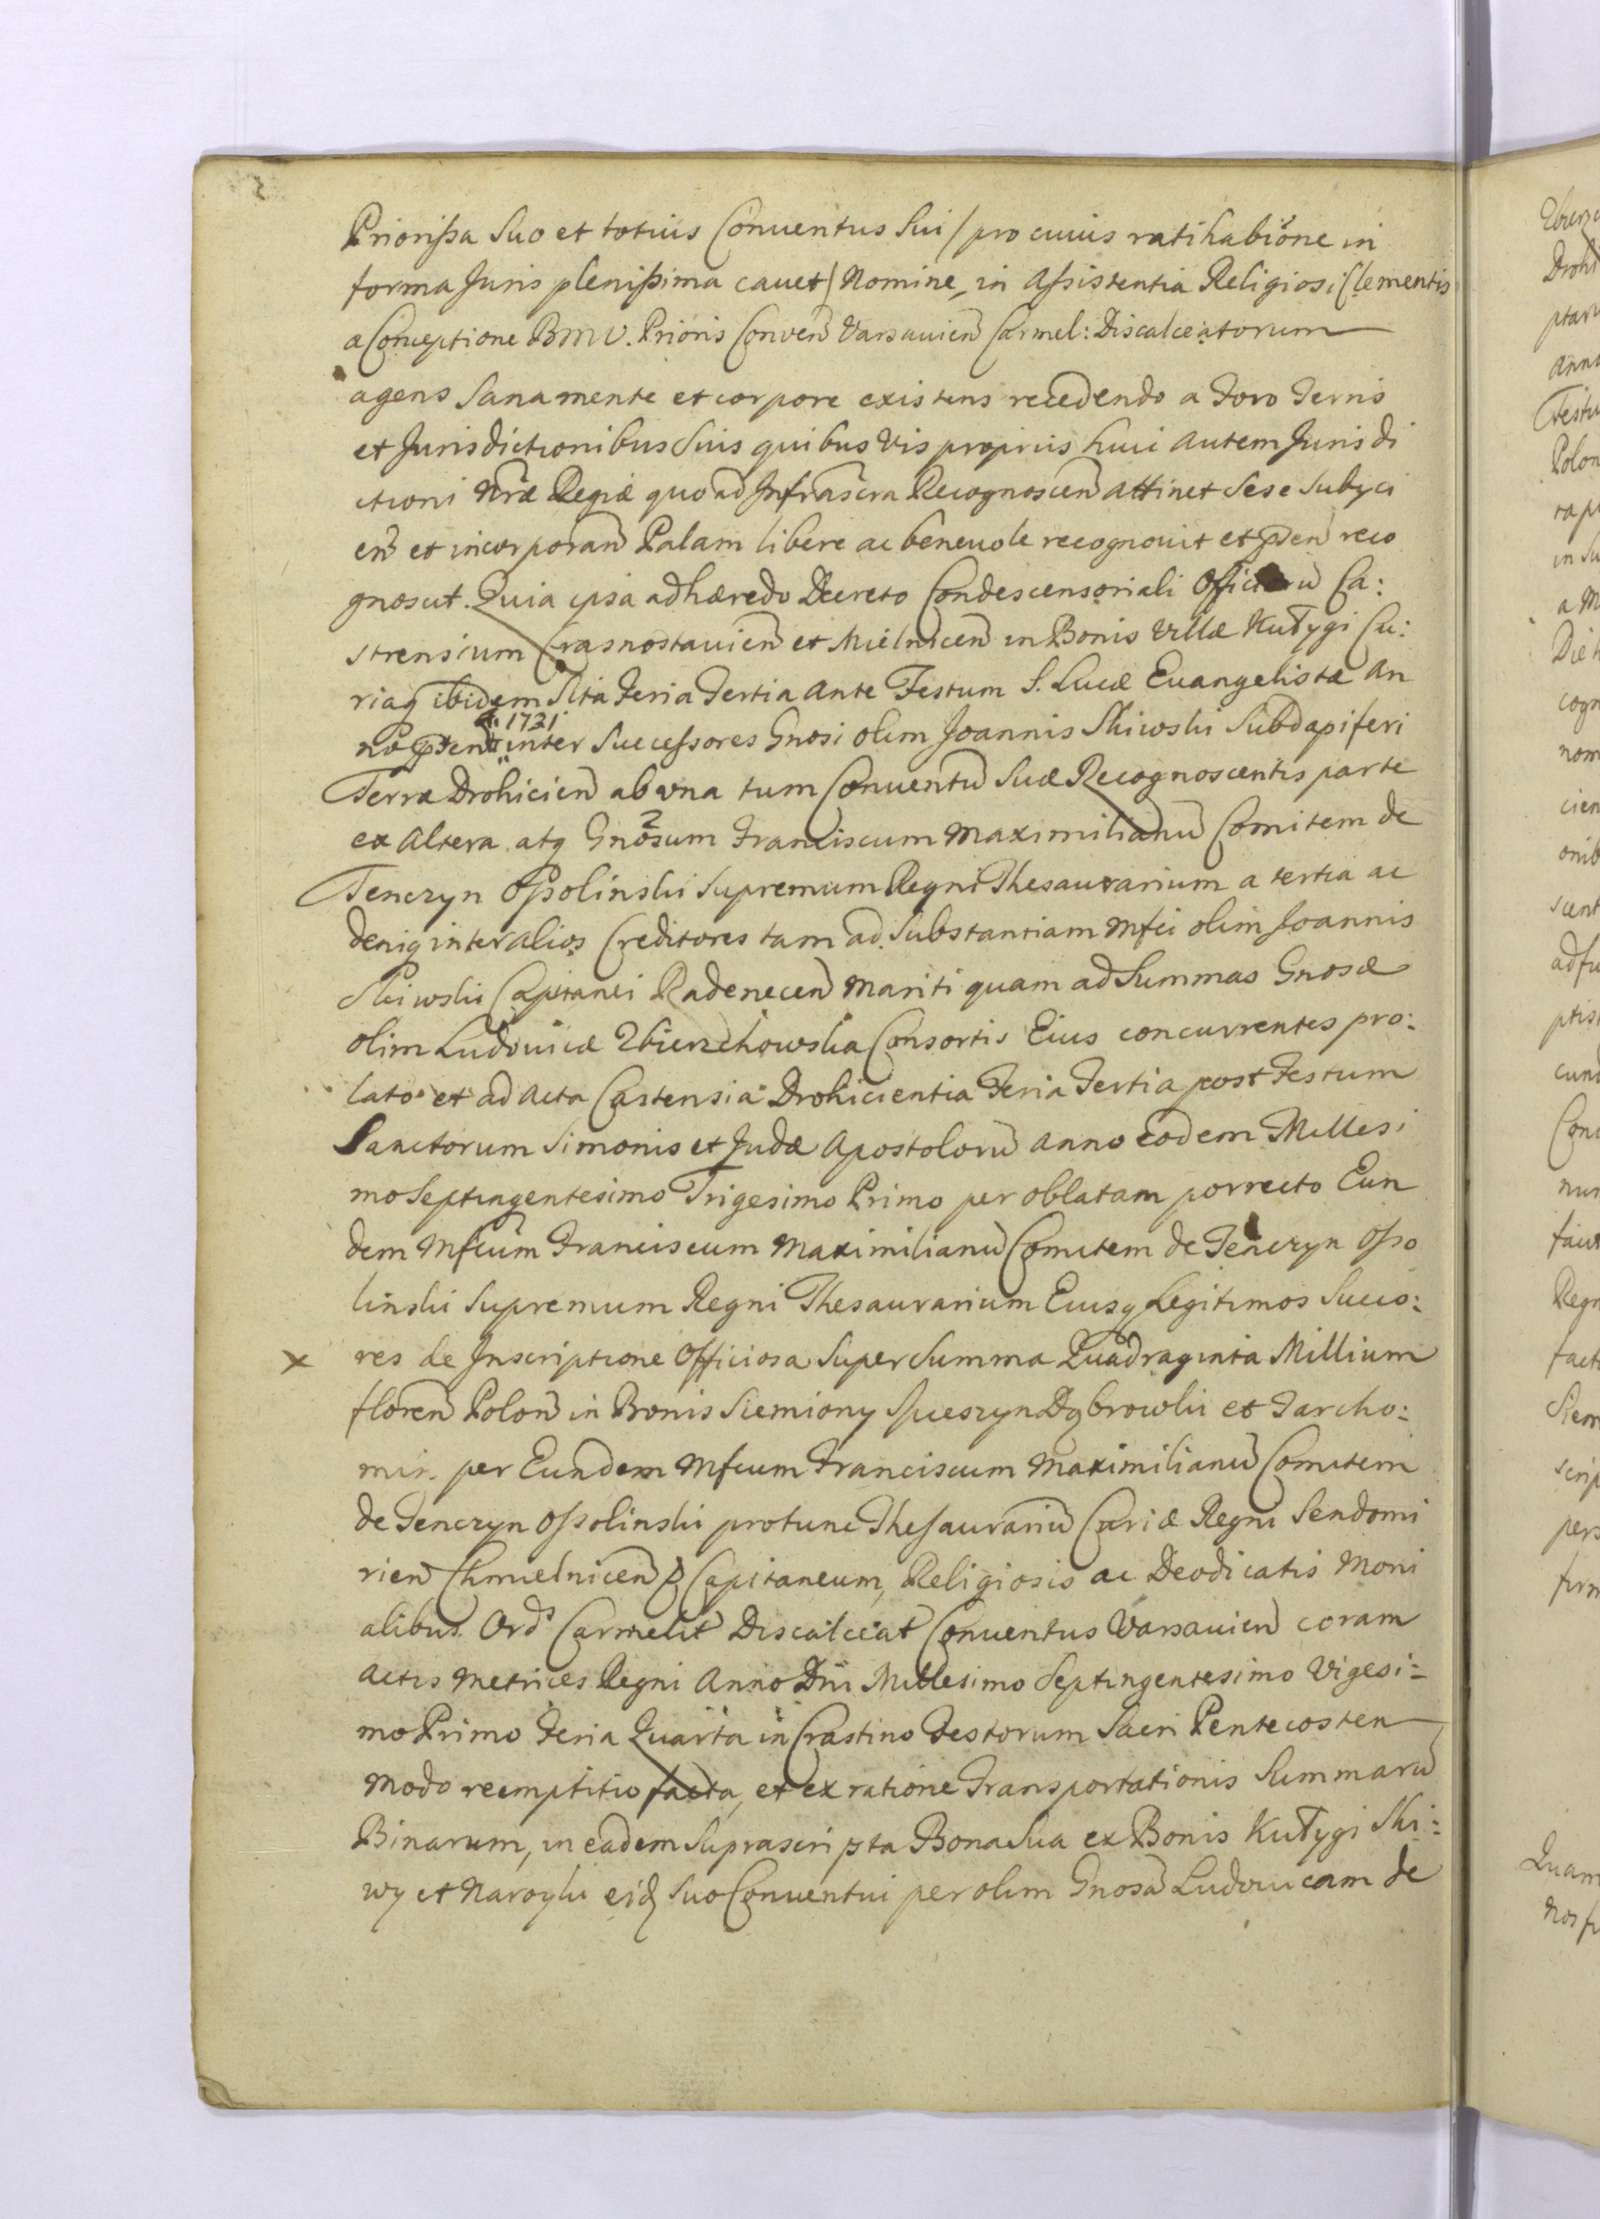 Priorissa Suo et totius Conuentus Sui /pro cuius ratihabione in
forma Juris plenissima cauet/ Nomine, in Assistentia Religiosi Clementis
a Conceptione BMV. Prioris Conven Varsauien Carmel: Discalceatorum
agens Sana mente et corpore existens recedendo a Foro Terris
et Jurisdictionibus Suis quibus Vis proprius huic autem Jurisdi
ctioni Nrae Regiae quo ad Infrascra Recognoscen attinet Sese Subyci
en et incorporan Palam libere ac beneuole recognouit et pden reco
gnoscit. Quia ipsa adhaeredo Decreto Condescensoriali Officioru Ca:
strensium Crasnostauien et Mielnicen in Bonis Villae Kutygi Cu:
riaq ibidem Sita Feria Tertia ante Festum S. Lucae Euangelistae An
no pden inter Successores Gnosi olim Joannis Skiwski Subdapiferi
A. 1731
Terrae Drohicien ab una tum Conuentu Suae Recognoscentis parte
ex Altera atq Gnosum Franciscum Maximilianu Comitem de
Tenczyn Ossolinski Supremum Regni Thesaurarium a tertia ac
deniq inter alios Creditores tam ad Substantiam Mfci olim Joannis
Skiwski Capitanei Radenecen Mariti quam ad Summas Gnosae
olim Ludouicae Zbierzchowska Consortis Eius concurrentes pro:
lato et ad Acta Castensia Drohicientia Feria Tertia post Festum
Sanctorum Simonis et Judae Apostoloru Anno Eodem Millesi
mo Septingentesimo Trigesimo Primo per oblatam porrecto Eun
dem Mfcum Franciscum Maximilianu Comitem de Tenczyn Osso
linski Supremum Regni Thesaurarium Eiusq Legitimos Succo:
x res de Inscriptione Officiosa Super Summa Quadraginta Millium
floren Polon in Bonis Siemiony Spieszyn Dąbrowki et Tarcho:
min per Eundem Mfcum Franciscum Maximilianu Comitem
de Tenczyn Ossolinski protunc Thesaurariu Curiae Regni Sendomi
rien Chmielnicen Capitaneum, Religiosis ac Deodicatis Moni
alibus Ord Carmelit Discalceat Conuentus Varsauien coram
Actis Metrices Regni Anno Dni Millesimo Septingentesimo Vigesi:
mo Primo Feria Quarta in Crastino Festorum Sacri Pentecosten
modo reemptitio facta, et ex ratione Transportationis Summaru
Binarum, in eadem Suprascripta Bona Sua ex Bonis Kutygi Ski:
wy et Naroyki eidq Suo Conuentui per olim Gnosa Ludouicam de